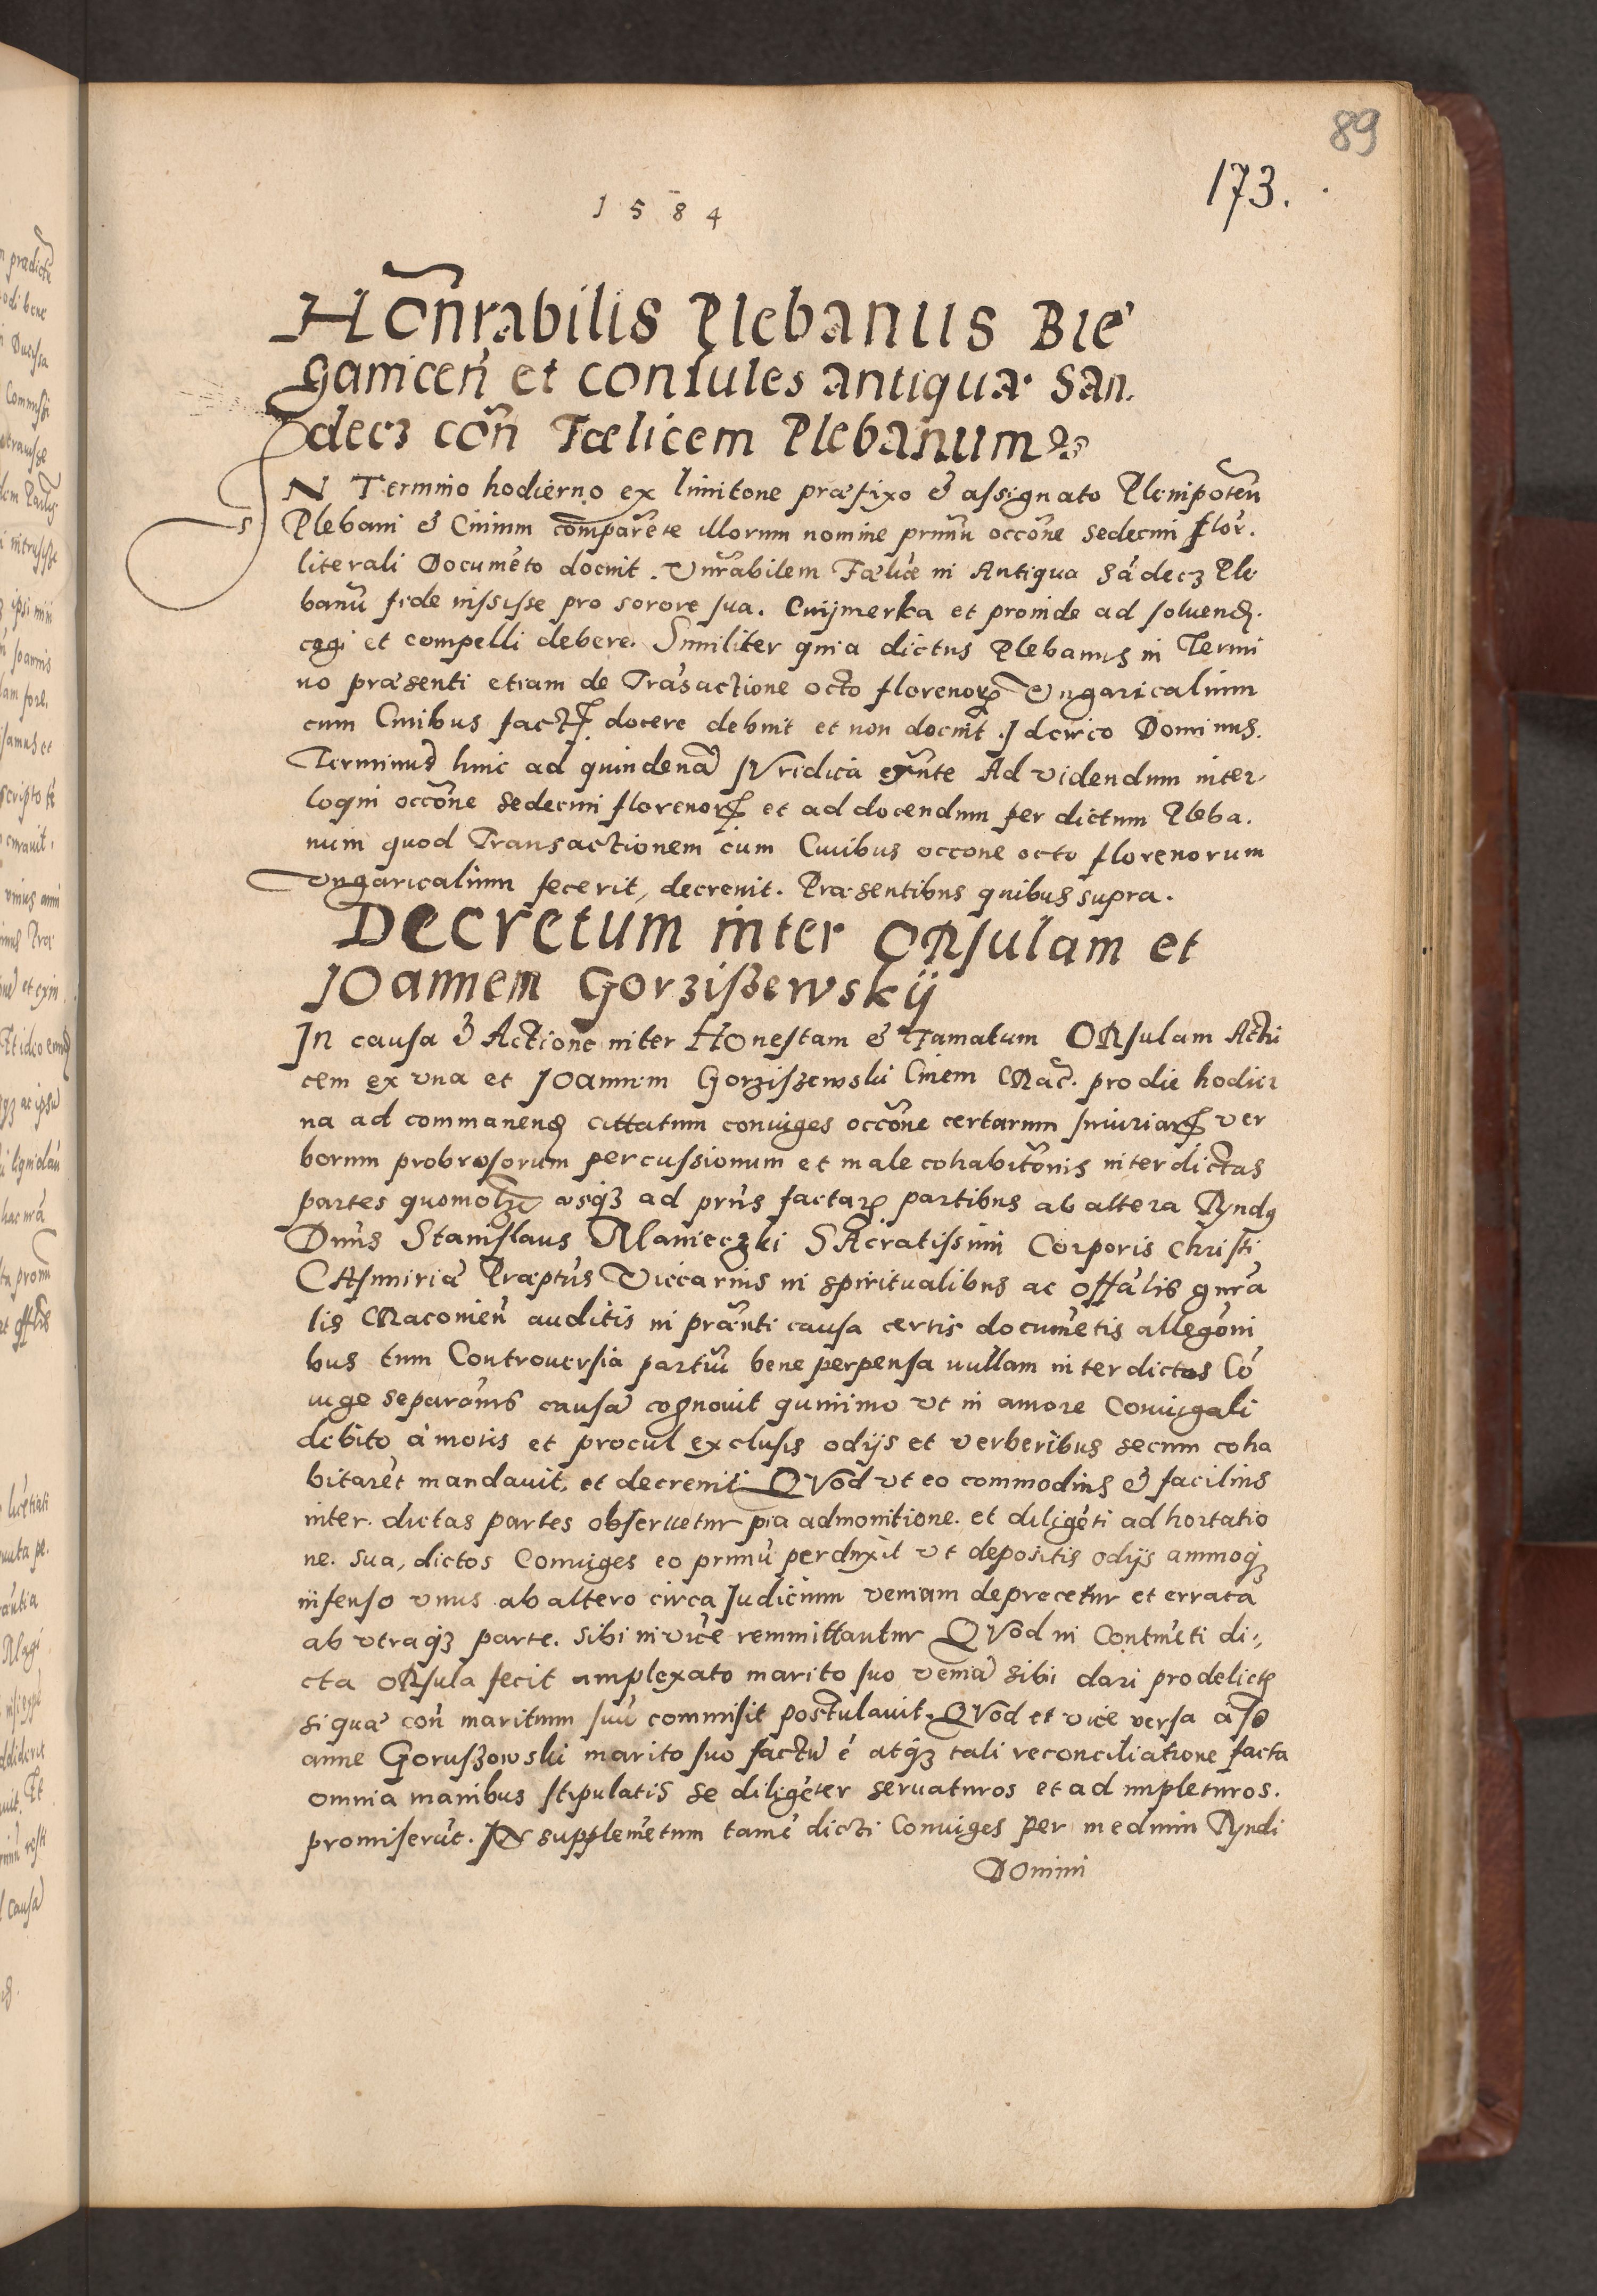 89
173.
1584
Hon̄rabilis Plebanus Bie
ganicen̄ et consules antiquæ San.
decz con̄ Fœlicem Plebanum
IN Termino hodierno ex limitone præfixo & assignato Plenipoten̄
Plebani & Ciuium comparēte illorum nomine primū occōne sedecim flor.
literali Documēto docuit. Vnr̄abilem Fælicē in Antiqua Sādecz Ple
banū fide iussisse pro sorore sua. Cuijmerka et proinde ad soluend.
cogi et compelli debere. Similiter quia dictus Plebanus in Termi
no præsenti etiam de Trāsactione octo florenorꝝ Vngaricalium
cum Ciuibus factꝭ docere debuit et non docuit. Idcirco Dominus.
Terminū hinc ad quindenā IVridicā exn̄te Ad videndum inter
loqui occōne sedecim florenorꝝ et ad docendum per dictum Pleba.
num quod Transactionem cum Ciuibus occone octo florenorum
vngaricalium fecerit, decreuit. Præsentibus quibus supra.
Decretum inter ORsulam et
IOannem Gorziszewskij
In causa & Actione inter HOnestam & Famatum ORsulam Actri
cem ex vna et IOannem Gorziszewski Ciuem CRac. pro die hodier
na ad commanend cittatum coniuges occōne certarum Iniuriarꝝ ver
borum probrosorum percussionum et male cohabitōnis inter dictas
partes quomolꝫ vsqꝫ ad prn̄s factarꝝ partibus ab altera Rṇndꝰ
Dn̄us Stanislaus CRlanieczki SAcratissimi Corporis Christi
CAsimiriæ Præptūs Viccarius in spiritualibus ac offālis gn̄ra
lis CRacouien̄ auditis in præn̄ti causa certis documētis allegōni
bus tum Controuersia partiū bene perpensa nullam inter dictos Cō
iuge separōnis causā cognouit quinimo vt in amore Coniugali
debito amoris et procul exclusis odijs et verberibus secum coha
bitarēt mandauit, et decreuit. QVod vt eo commodius & facilius
inter dictas partes obseruetur pia admonitione. et diligēti adhortatio
ne. sua, dictos Coniuges eo primū perduxit vt depositis odijs animoqꝫ
infenso vnus ab altero circa Iudicium veniam deprecetur et errata
ab vtraqꝫ parte. sibi inuicē remmittantur QVod in Continēti di-
cta ORsula fecit amplexato marito suo veniā sibi dari pro delictꝭ
si qua con̄ maritum suū commisit postulauit. QVod et vice versa a IO
anne Goruszowski marito suo factū ē atqꝫ tali reconciliatione facta
omnia manibus stipulatis se diligēter seruaturos et ad impleturos.
promiserūt. IN supplemētum tamē dicti Coniuges per medium Rṇndi
DOmini